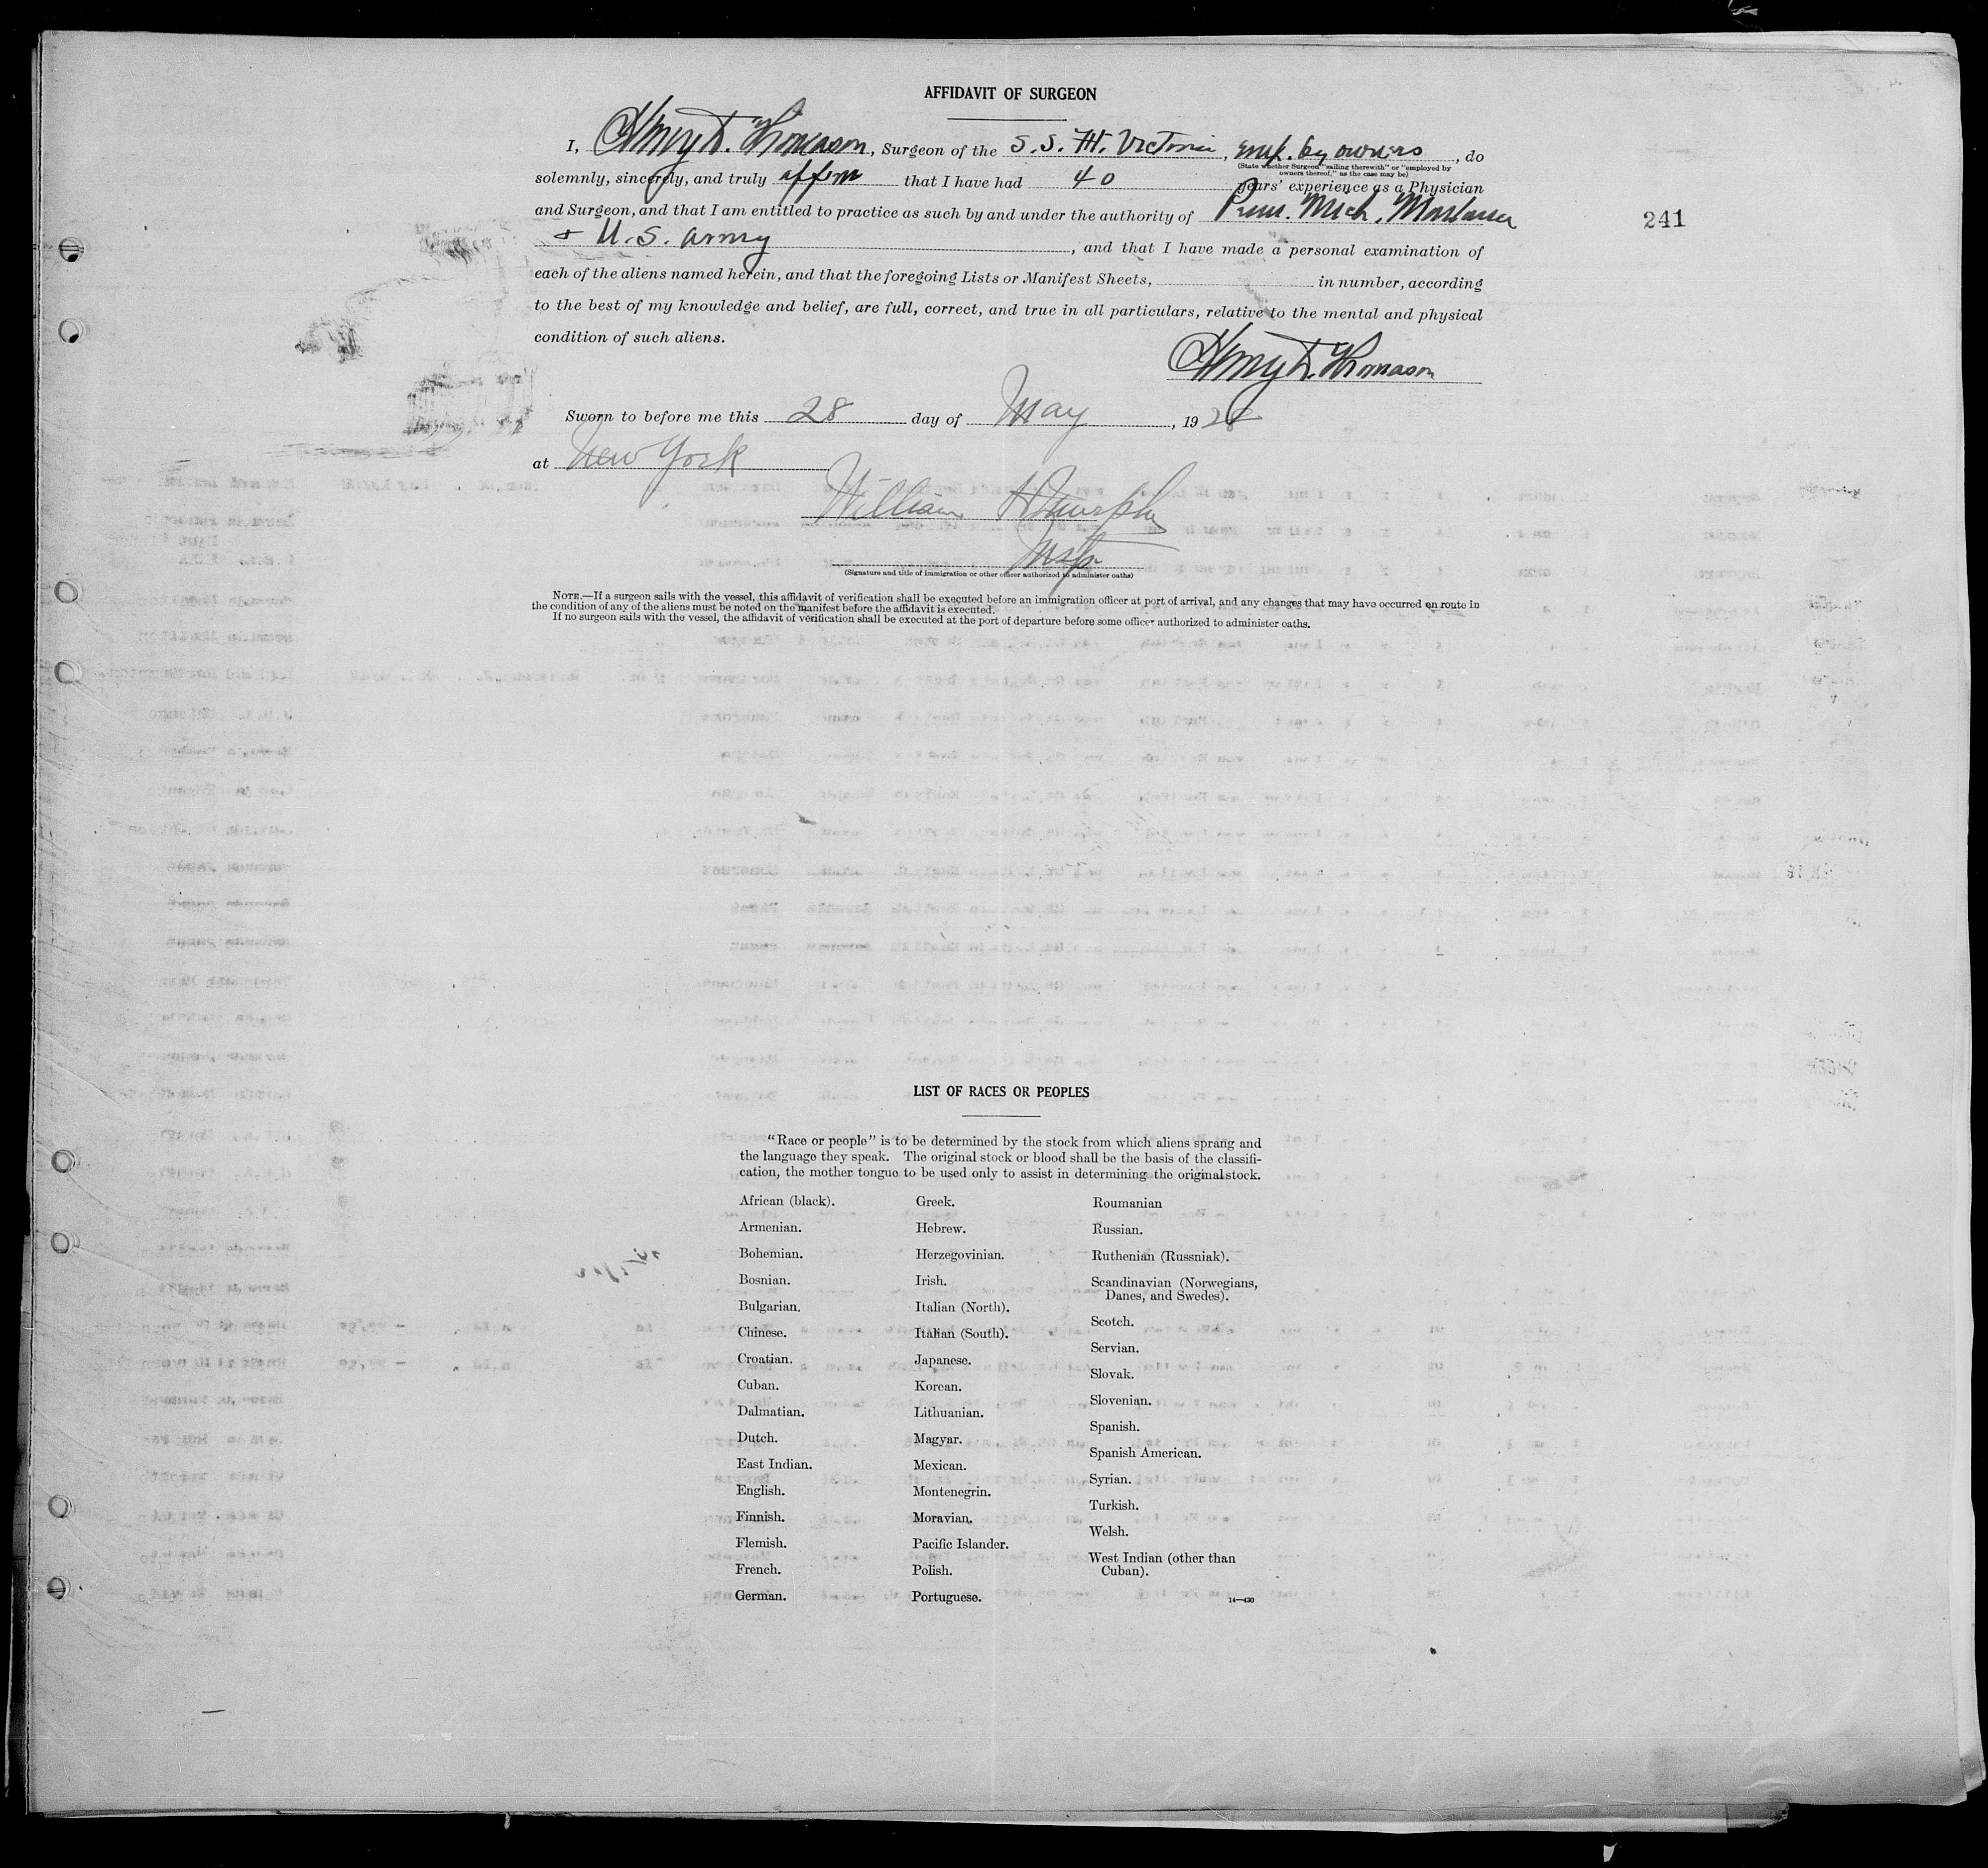 AFFIDAVIT OF SURGEON
I, Henry D. Thomason, Surgeon of the S.S. Ft. Victoria, emp. by owners, do
(State whether Surgeon "sailing therewith" or "employed by
owners thereof," as the case may be)
solemnly, sincerely, and truly affirm that I have had 40 years' experience as a Physician
and Surgeon, and that I am entitled to practice as such by and under the authority of Mich.
241
+ U.S. Army, and that I have made a personal examination of
each of the aliens named herein, and that the foregoing Lists or Manifest Sheets, in number, according
to the best of my knowledge and belief, are full, correct, and true in all particulars, relative to the mental and physical
condition of such aliens.
Henry D. Thomason
Sworn to before me this 28 day of May, 19
at New York
William H Murphy
Insp.
(Signature and title of immigration or other officer authorized to administer oaths)
NOTE.—If a surgeon sails with the vessel, this affidavit of verification shall be executed before an immigration officer at port of arrival, and any changes that may have occurred en route in
the condition of any of the aliens must be noted on the manifest before the affidavit is executed.
If no surgeon sails with the vessel, the affidavit of verification shall be executed at the port of departure before some officer authorized to administer oaths.
LIST OF RACES OR PEOPLES
"Race or people" is to be determined by the stock from which aliens sprang and
the language they speak. The original stock or blood shall be the basis of the classifi-
cation, the mother tongue to be used only to assist in determining the original stock.
African (black).
Armenian.
Bohemian.
Bosnian.
Bulgarian.
Chinese.
Croatian.
Cuban.
Dalmatian.
Dutch.
East Indian.
English.
Finnish.
Flemish.
French.
German.
Greek.
Hebrew.
Herzegovinian.
Irish.
Italian (North).
Italian (South).
Japanese.
Korean.
Lithuanian.
Magyar.
Mexican.
Montenegrin.
Moravian.
Pacific Islander.
Polish.
Portuguese.
Roumanian
Russian.
Ruthenian (Russniak).
Scandinavian (Norwegians,
Danes, and Swedes).
Scotch.
Servian.
Slovak.
Slovenian.
Spanish.
Spanish American.
Syrian.
Turkish.
Welsh.
West Indian (other than
Cuban).
14—430